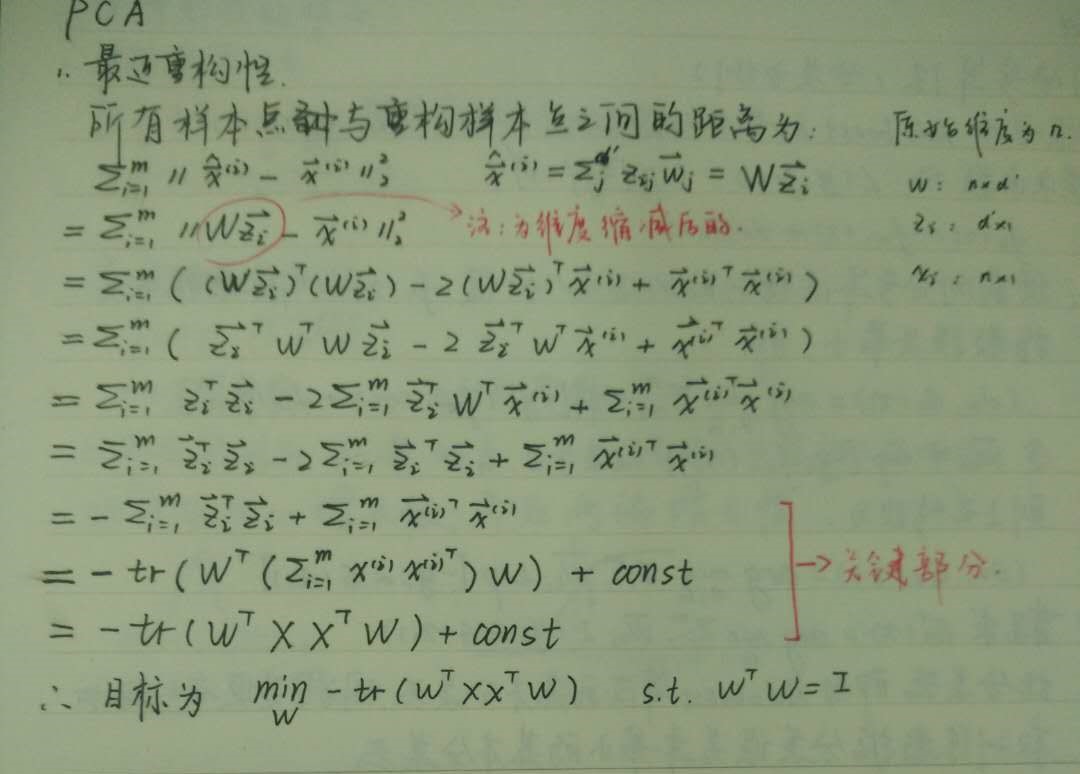 PCA
1. 最近重构性.
所有样本点与重构样本点之间的距离为: 原始维度为n.
Σ_{i=1}^m ‖ x̂⃗^{(i)} - x⃗^{(i)} ‖₂² x̂⃗^{(i)} = Σ_j^{d'} z_{ij} w⃗_j = W z⃗_i W: n×d'
= Σ_{i=1}^m ‖ W z⃗_i - x⃗^{(i)} ‖₂² → 注: 为维度缩减后的. z_i: d'×1
= Σ_{i=1}^m ( (W z⃗_i)^T (W z⃗_i) - 2(W z⃗_i)^T x⃗^{(i)} + x⃗^{(i)T} x⃗^{(i)} ) x_i: n×1
= Σ_{i=1}^m ( z⃗_i^T W^T W z⃗_i - 2 z⃗_i^T W^T x⃗^{(i)} + x⃗^{(i)T} x⃗^{(i)} )
= Σ_{i=1}^m z⃗_i^T z⃗_i - 2 Σ_{i=1}^m z⃗_i^T W^T x⃗^{(i)} + Σ_{i=1}^m x⃗^{(i)T} x⃗^{(i)}
= Σ_{i=1}^m z⃗_i^T z⃗_i - 2 Σ_{i=1}^m z⃗_i^T z⃗_i + Σ_{i=1}^m x⃗^{(i)T} x⃗^{(i)}
= - Σ_{i=1}^m z⃗_i^T z⃗_i + Σ_{i=1}^m x⃗^{(i)T} x⃗^{(i)}
= - tr( W^T ( Σ_{i=1}^m x^{(i)} x^{(i)T} ) W ) + const → 关键部分.
= - tr( W^T X X^T W ) + const
∴ 目标为 min_W - tr( W^T X X^T W ) s.t. W^T W = I